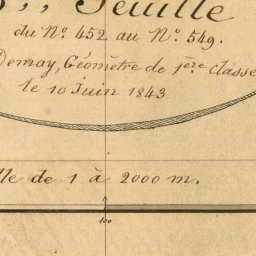 Feuille
du N.º 452 au N.º 549.
Demay, Géomètre de 1.ère classe
le 10 Juin 1843
lle de 1 à 2000 m.
100